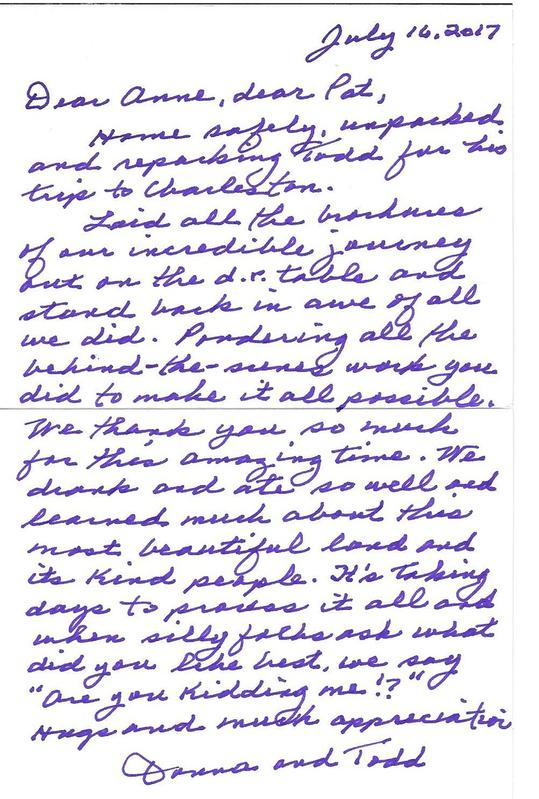 July 16, 2017
Dear Anne, dear Pat,
Home safely, unpacked
and repacking Todd for his
trip to Charleston.
Laid all the brochures
of our incredible journey
out on the d.r. table and
stand back in awe of all
we did. Pondering all the
behind-the-scenes work you
did to make it all possible.
We thank you so much
for this amazing time. We
drank and ate so well and
learned much about this
most beautiful land and
its kind people. It's taking
days to process it all and
when silly folks ask what
did you like best, we say
"Are you kidding me!?"
Hugs and much appreciation
Donna and Todd